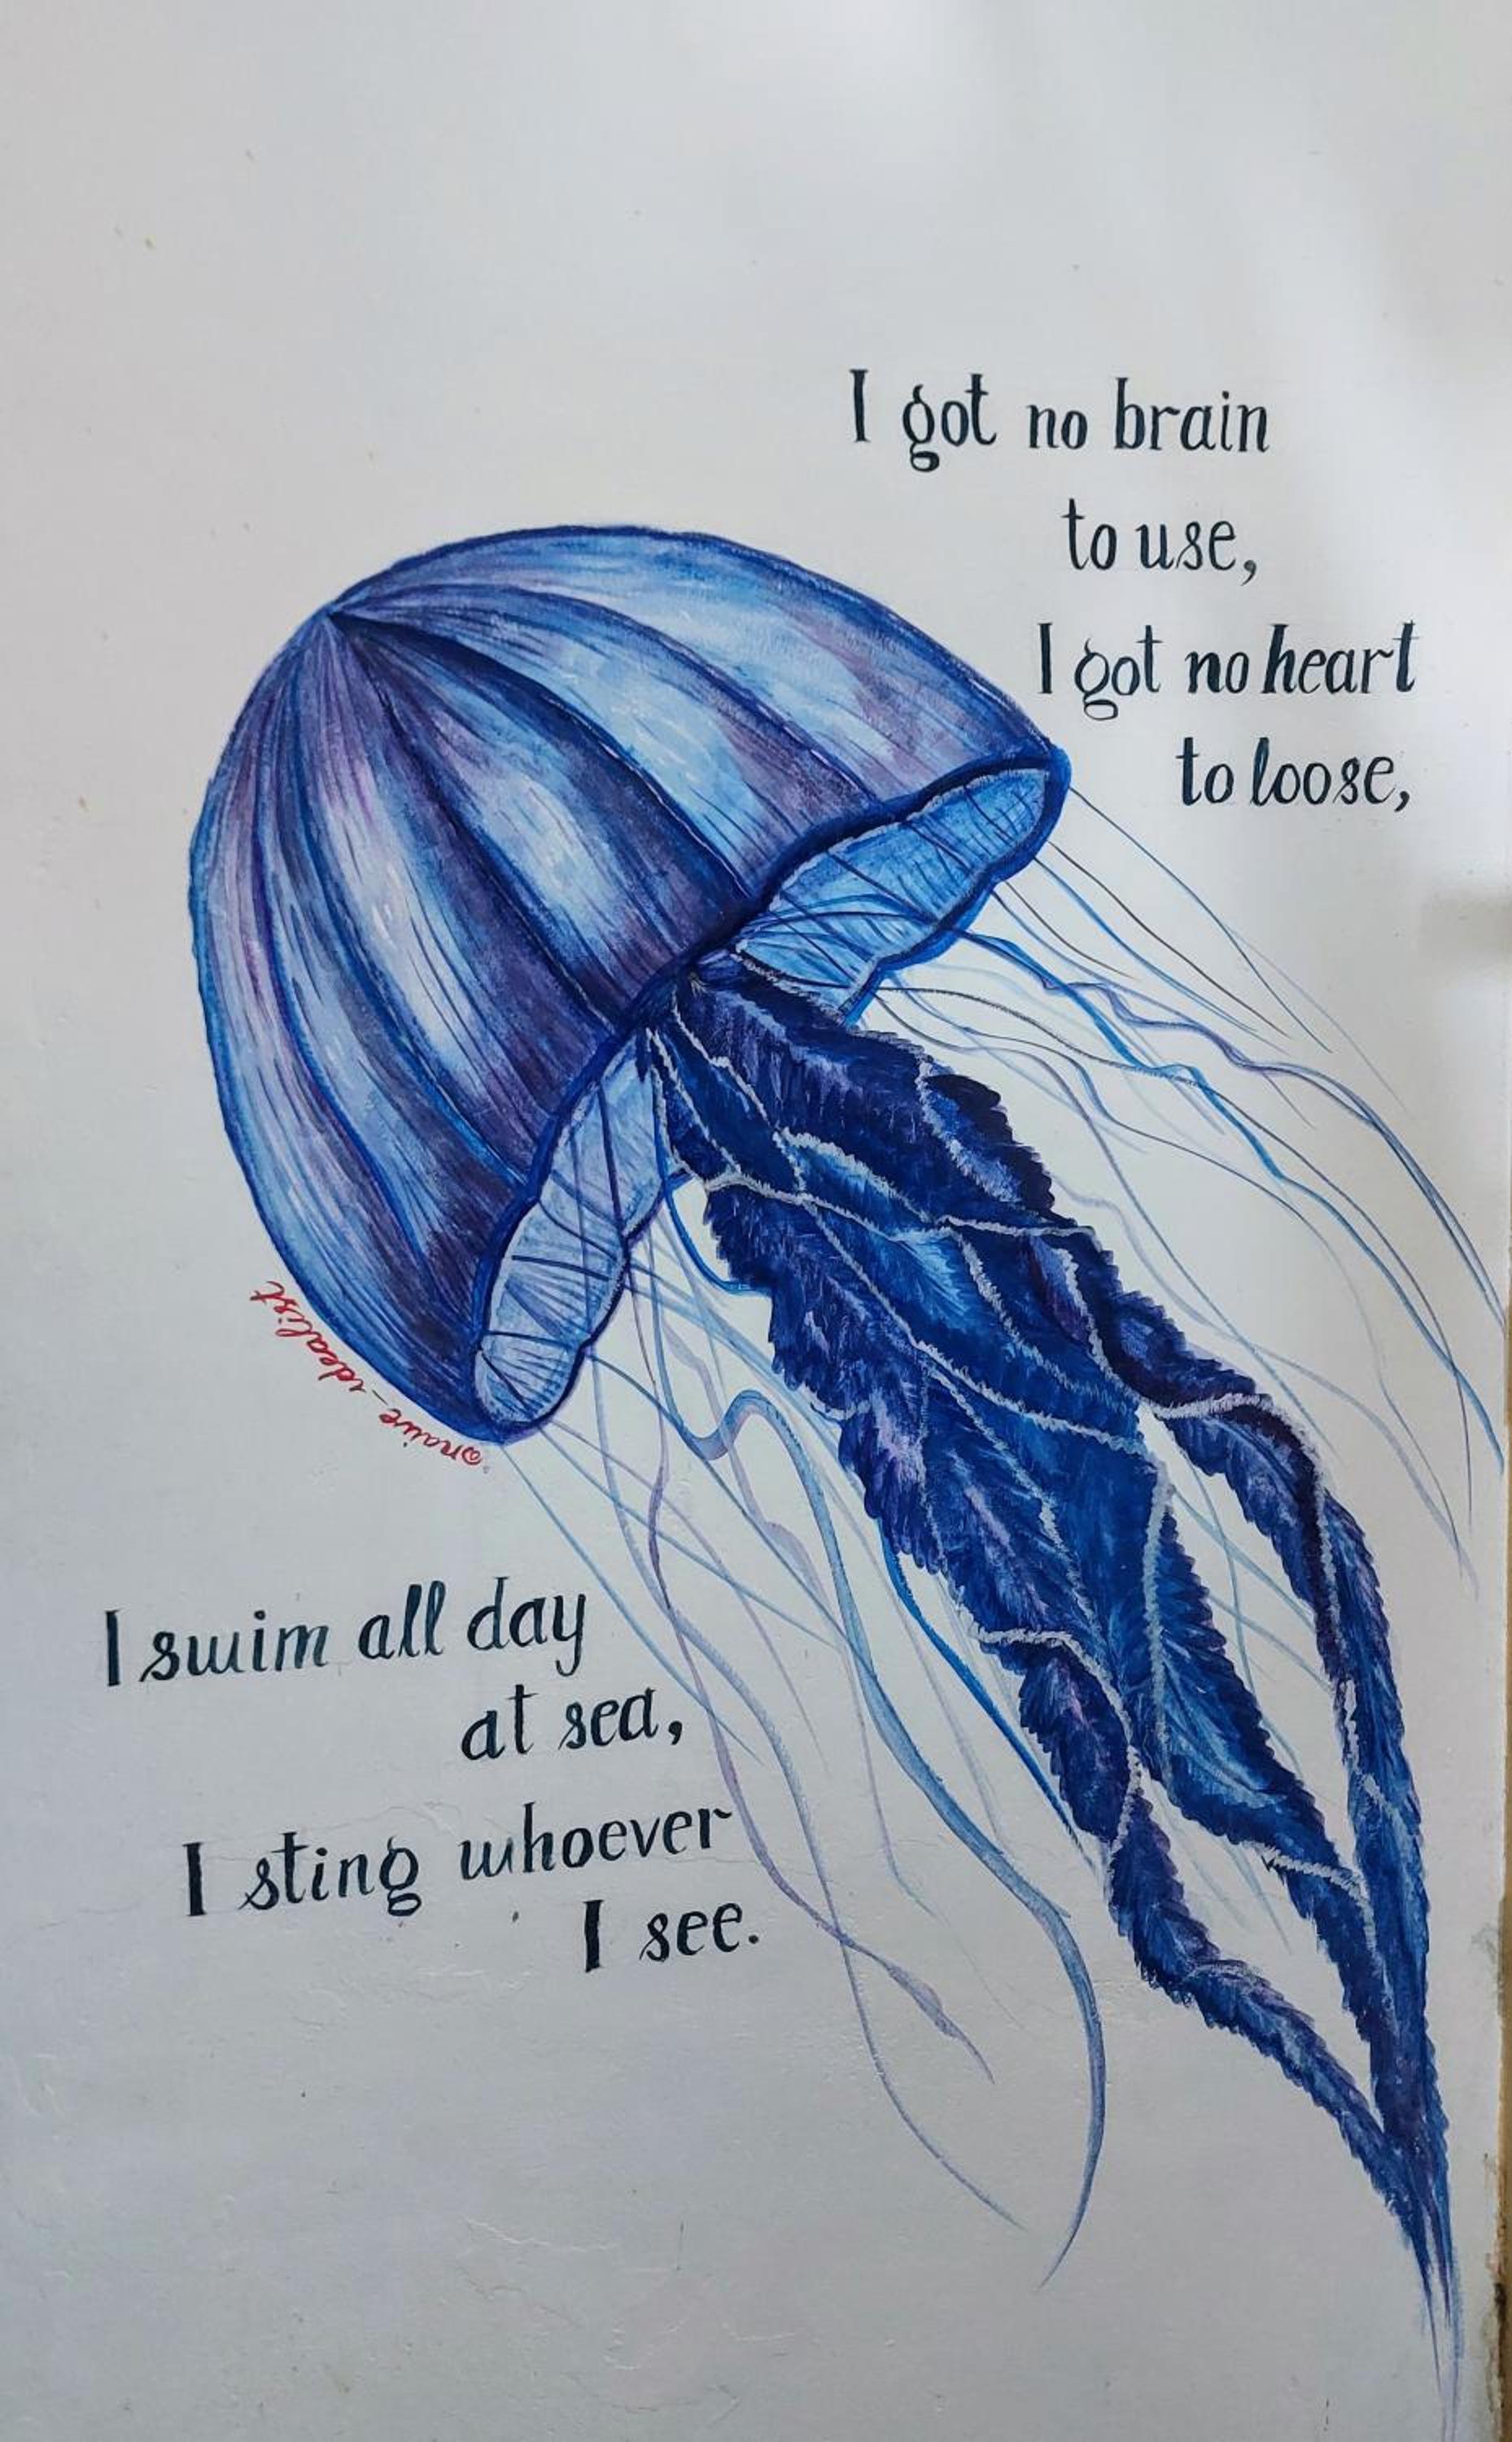 I got no brain
to use,
I got no heart
to loose,
@naive_idealist
I swim all day
at sea,
I sting whoever
I see.